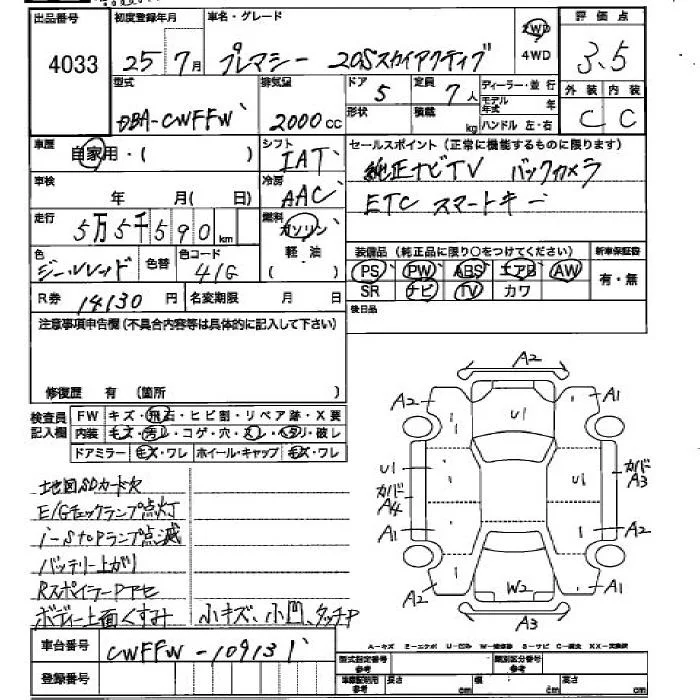 出品番号 初度登録年月 車名・グレード 2WD 評価点
4033 25年7月 プレマシー 20Sスカイアクティブ 4WD 3.5
型式 排気量 ドア 定員 ディーラー・並行 外装 内装
DBA-CWFFW 2000cc 5 7人 モデル年式 年 C C
形状 積載 kg ハンドル 左・右
車歴 自家用・( ) シフト IAT セールスポイント(正常に機能するものに限ります)
車検 年 月(日) 冷房 AAC 純正ナビTV バックカメラ
ETC スマートキー
走行 5万5千590km 燃料 ガソリン 軽油 ( )
色 ジールレッド 色替 色コード 41G
装備品(純正品に限り○をつけてください) 新車保証書
PS PW ABS エアB AW 有・無
SR ナビ TV カワ
R券 14130円 名変期限 月 日 後日品
注意事項申告欄(不具合内容等は具体的に記入して下さい)
修復歴 有 (箇所 )
検査員記入欄 FW キズ・飛石・ヒビ割・リペア跡・X要
内装 キズ・汚レ・コゲ・穴・スレ・ヘタリ・破レ
ドアミラー キズ・ワレ ホイール・キャップ キズ・ワレ
地図SDカード欠
E/Gチェックランプ点灯
i-stopランプ点滅
バッテリー上がり
RスポイラーPアセ
ボディー上面くすみ 小キズ、小凹、タッチP
A2
A2 A1
U1
U1 カバドA3
カバドA4
A1 A2
A2 W2 A1
A3
A-キズ ミ-エクボ U-凹み W-補修跡 S-サビ C-腐食 XX-交換済
車台番号 CWFFW-109131
登録番号
型式指定番号 参考 類別区分番号 参考
車庫証明用 参考 長さ cm 幅 cm 高さ cm